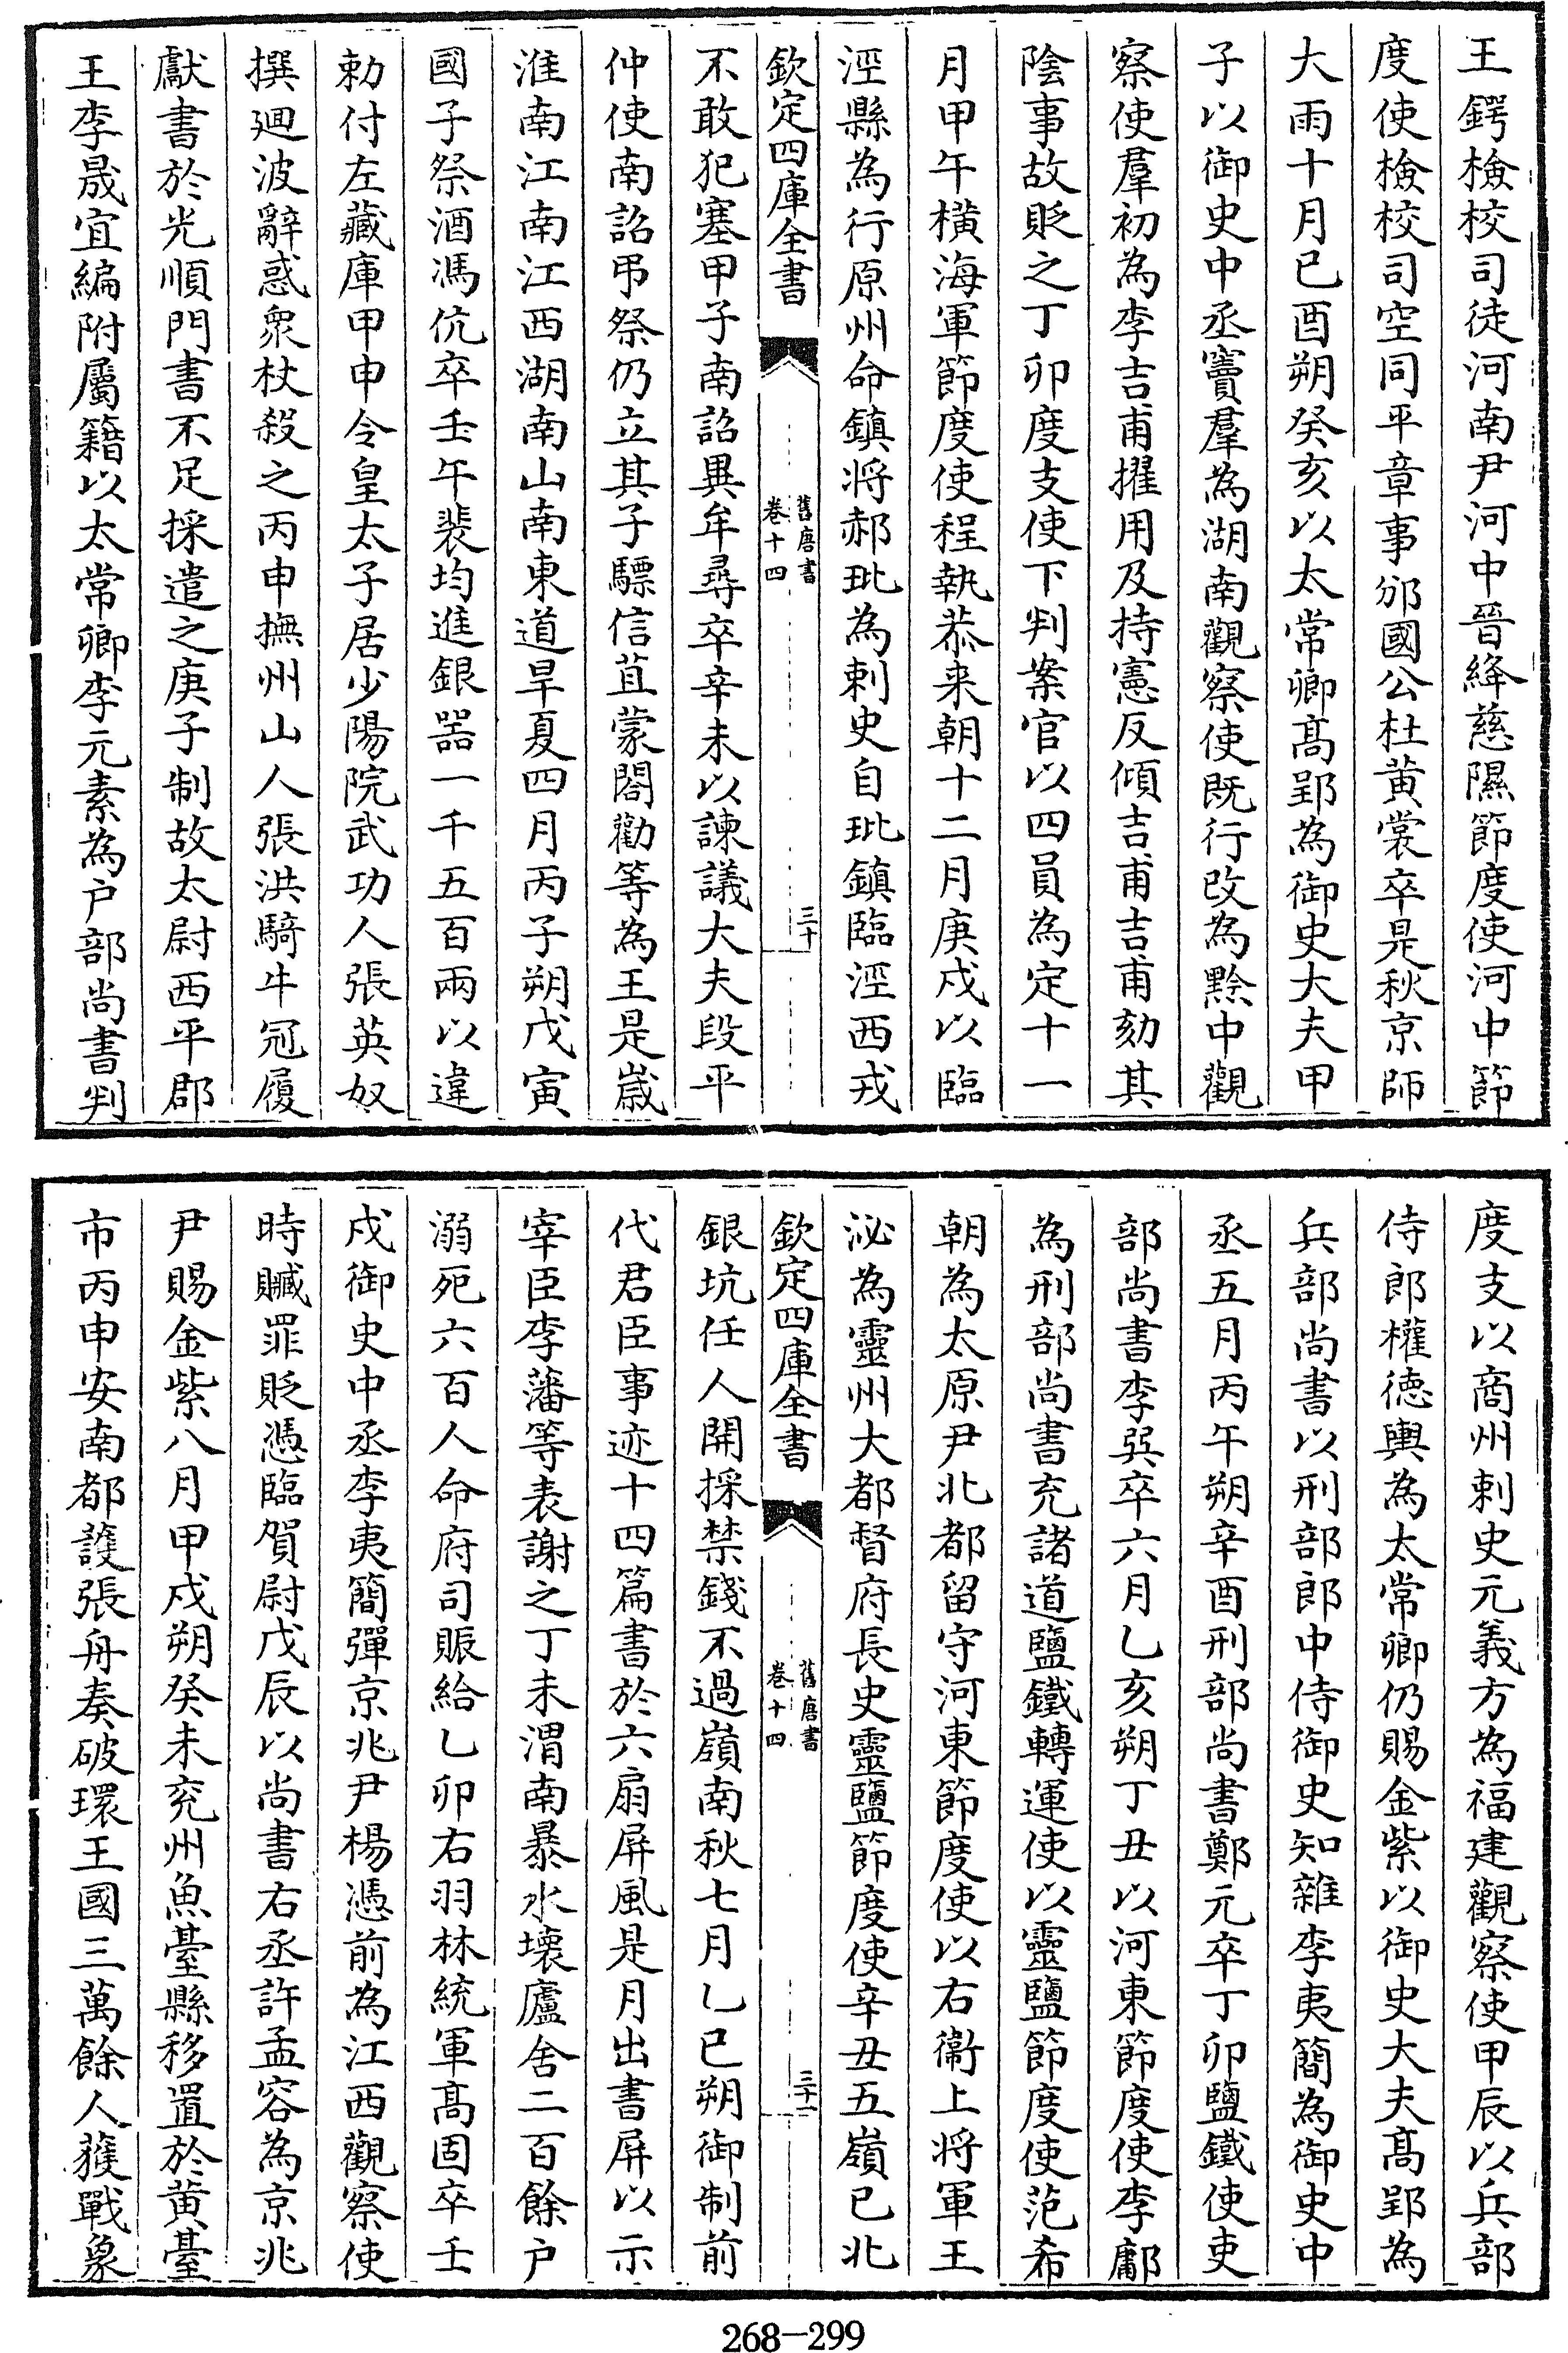 王鍔檢校司徒河南尹河中晉絳慈隰節度使河中節
度使檢校司空同平章事邠國公杜黄裳卒是秋京師
大雨十月已酉朔癸亥以太常卿髙郢為御史大夫甲
子以御史中丞竇羣為湖南觀察使既行改為黔中觀
察使羣初為李吉甫擢用及持憲反傾吉甫吉甫劾其
陰事故貶之丁卯度支使下判案官以四員為定十一
月甲午橫海軍節度使程執恭来朝十二月庚戍以臨
涇縣為行原州命鎮將郝玭為刺史自玭鎮臨涇西戎
欽定四庫全書
舊唐書
卷十四
三十
不敢犯塞甲子南詔異牟尋卒辛未以諫議大夫段平
仲使南詔弔祭仍立其子驃信苴蒙閤勸等為王是嵗
淮南江南江西湖南山南東道旱夏四月丙子朔戊寅
國子祭酒馮伉卒壬午裴均進銀器一千五百兩以違
勅付左藏庫甲申令皇太子居少陽院武功人張英奴
撰廻波辭惑衆杖殺之丙申撫州山人張洪騎牛冠履
獻書於光順門書不足採遣之庚子制故太尉西平郡
王李晟宜編附屬籍以太常卿李元素為户部尚書判
度支以商州刺史元義方為福建觀察使甲辰以兵部
侍郎權徳輿為太常卿仍賜金紫以御史大夫髙郢為
兵部尚書以刑部郎中侍御史知雜李夷簡為御史中
丞五月丙午朔辛酉刑部尚書鄭元卒丁卯鹽鐵使吏
部尚書李巽卒六月乙亥朔丁丑以河東節度使李鄘
為刑部尚書充諸道鹽鐵轉運使以靈鹽節度使范希
朝為太原尹北都留守河東節度使以右衞上將軍王
泌為靈州大都督府長史靈鹽節度使辛丑五嶺已北
欽定四庫全書
舊唐書
卷十四
三十一
銀坑任人開採禁錢不過嶺南秋七月乙已朔御制前
代君臣事迹十四篇書於六扇屏風是月出書屏以示
宰臣李藩等表謝之丁未渭南暴水壊廬舍二百餘户
溺死六百人命府司賑給乙卯右羽林統軍髙固卒壬
戍御史中丞李夷簡彈京兆尹楊憑前為江西觀察使
時贓罪貶憑臨賀尉戊辰以尚書右丞許孟容為京兆
尹賜金紫八月甲戍朔癸未兖州魚臺縣移置於黄臺
市丙申安南都護張舟奏破環王國三萬餘人獲戰象
268-299